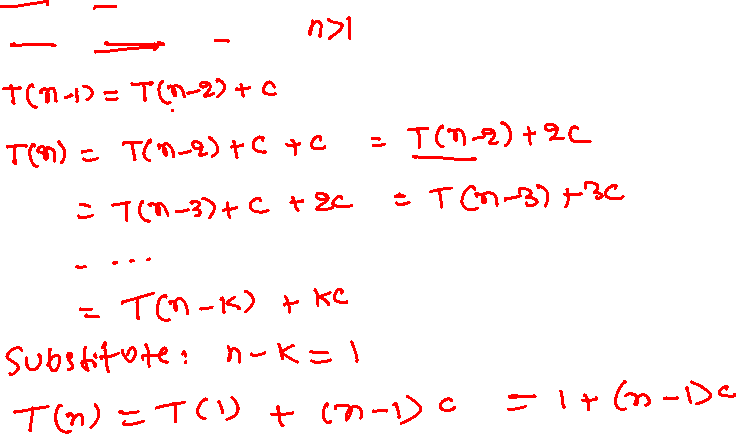 n>1
T(n-1) = T(n-2) + c
T(n) = T(n-2) + c + c = T(n-2) + 2c
= T(n-3) + c + 2c = T(n-3) + 3c
- ...
= T(n-k) + kc
Substitute: n-k = 1
T(n) = T(1) + (n-1) c = 1 + (n-1)c